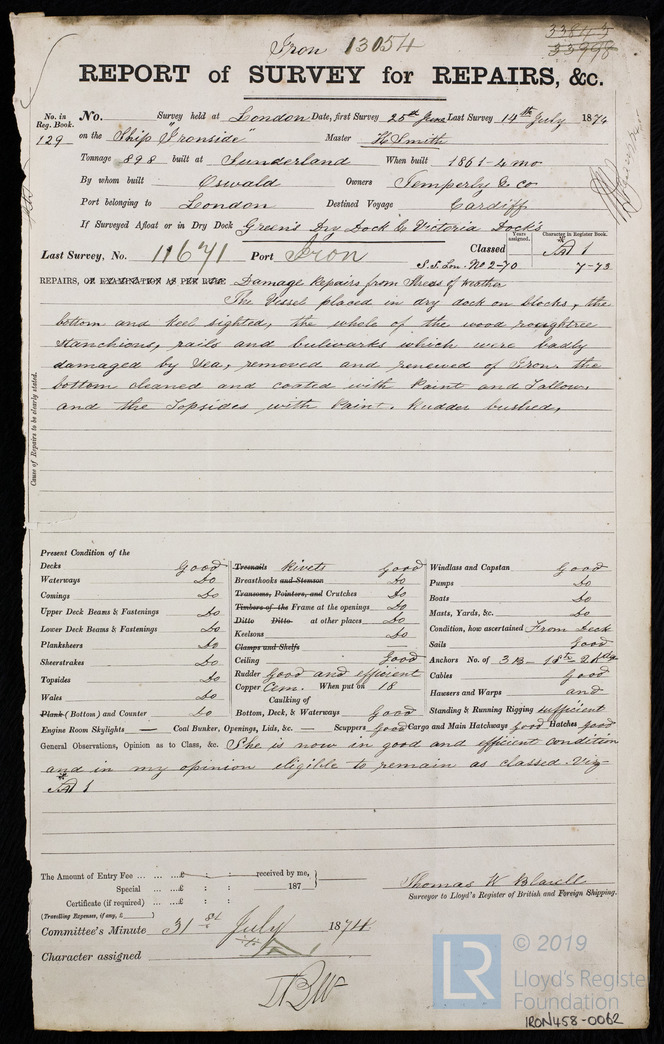 Iron 13054
33843
33998
REPORT of SURVEY for REPAIRS, &c.
No. in Reg. Book. No. Survey held at London Date, first Survey 25th June Last Survey 14th July 1874
129 on the Ship "Ironside" Master H Smith
Tonnage 898 built at Sunderland When built 1861-4 mo
By whom built Oswald Owners Temperly & Co
Port belonging to London Destined Voyage Cardiff
If Surveyed Afloat or in Dry Dock Green's Dry Dock & Victoria Dock's
Last Survey, No. 11671 Port Iron Classed Years assigned. Character in Register Book. A 1
S.S. Lon. No 2-70 7-73
REPAIRS, OR EXAMINATION AS PER RULE Damage Repairs from Stress of Weather
The Vessel placed in dry dock on blocks, the
bottom and keel sighted, the whole of the wood roughtree
stanchions, rails and bulwarks which were badly
damaged by Sea, removed and renewed of Iron. the
bottom cleaned and coated with Paint and Tallow,
and the Topsides with Paint. Rudder bushed,
Cause of Repairs to be clearly stated.
Present Condition of the
Decks Good
Waterways Do
Comings Do
Upper Deck Beams & Fastenings Do
Lower Deck Beams & Fastenings Do
Planksheers Do
Sheerstrakes Do
Topsides Do
Wales Do
Plank (Bottom) and Counter Do
Treenails Rivets Good
Breasthooks and Stemson Do
Transoms, Pointers, and Crutches Do
Timbers of the Frame at the openings Do
Ditto Ditto at other places Do
Keelsons Do
Clamps and Shelfs
Ceiling Good
Rudder Good and efficient
Copper Cem. When put on 18
Caulking of
Bottom, Deck, & Waterways Good
Windlass and Capstan Good
Pumps Do
Boats Do
Masts, Yards, &c. Do
Condition, how ascertained From Deck
Sails Good
Anchors No. of 3 B- 1 St-
Cables Good
Hawsers and Warps and
Standing & Running Rigging sufficient
Engine Room Skylights — Coal Bunker, Openings, Lids, &c. — Scuppers Good Cargo and Main Hatchways Good Hatches Good
General Observations, Opinion as to Class, &c. She is now in good and efficient condition
and in my opinion eligible to remain as classed. Viz-
A 1
The Amount of Entry Fee ... ... ...£ : : received by me,
Special ... ...£ : : 187
Certificate (if required) ... ...£ : :
(Travelling Expenses, if any, £ )
Thomas W Blackwell
Surveyor to Lloyd's Register of British and Foreign Shipping.
Committee's Minute 31st July 1874
Character assigned
LR
© 2019
Lloyd's Register
Foundation
IRON458-0062